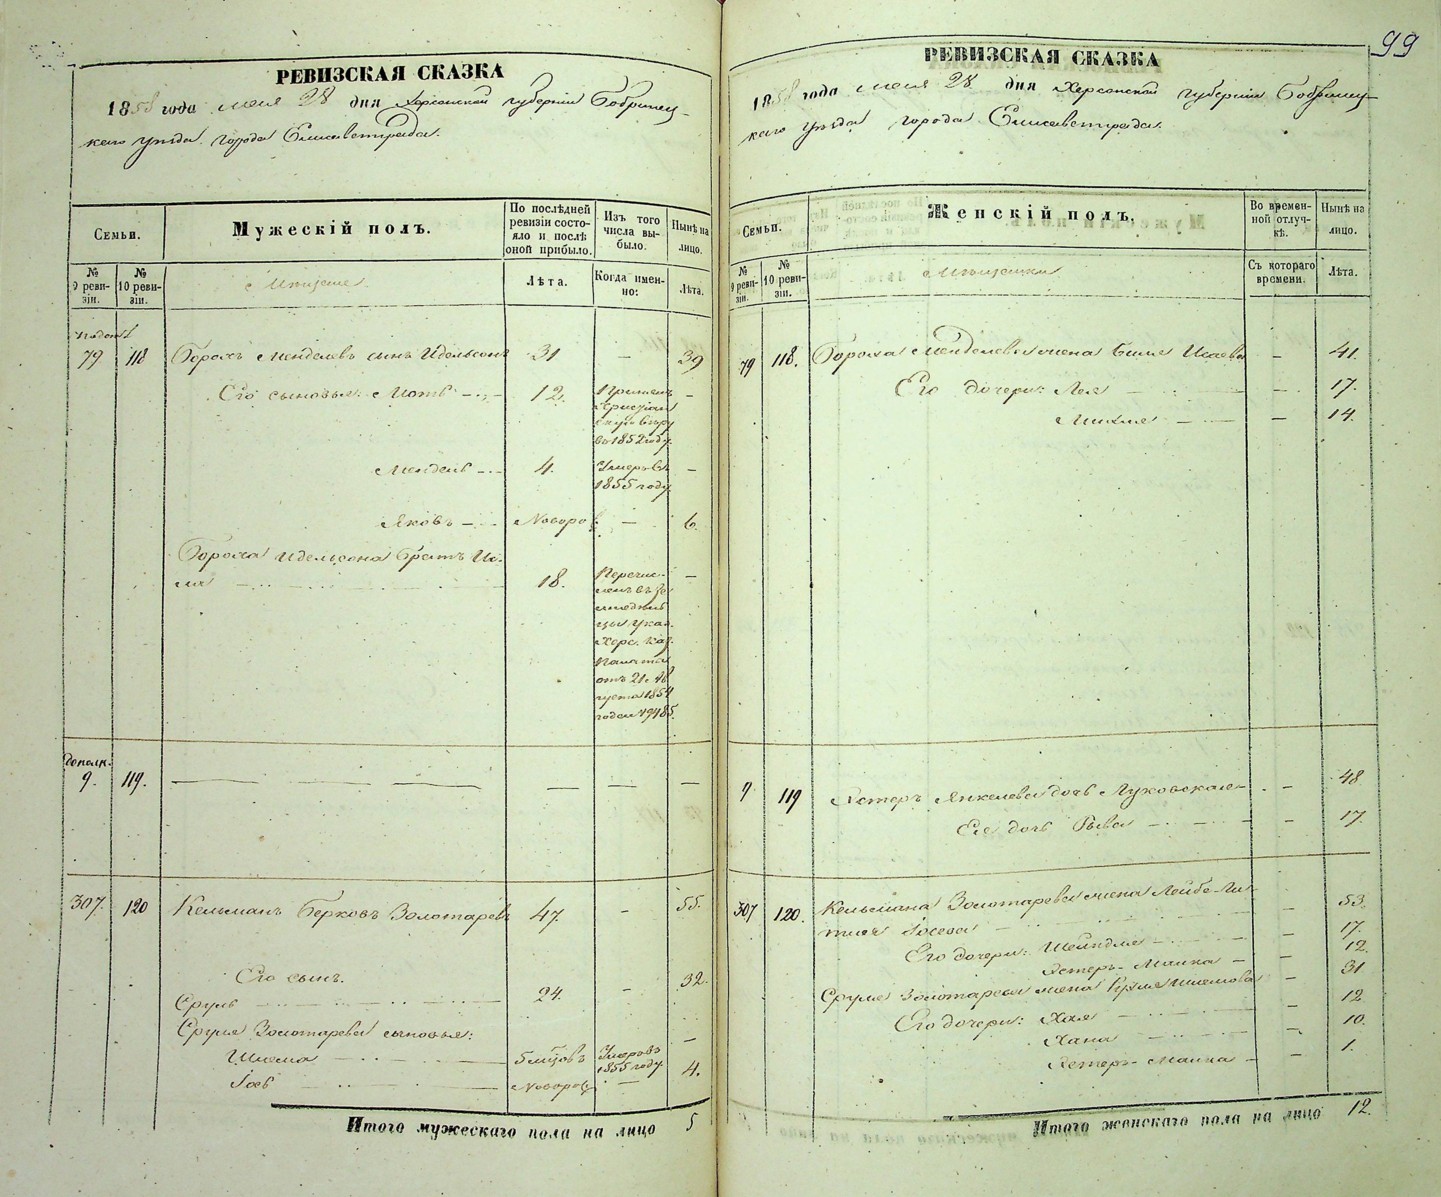 99
РЕВИЗСКАЯ СКАЗКА
1858 года мая 28 дня Херсонской губернии Бобринец-
каго уѣзда города Елисаветграда.
Семьи.
Мужескій полъ.
По послѣдней ревизіи состо-
яло и послѣ оной прибыло.
Изъ того числа вы-
было.
Нынѣ на лицо.
№ 9 реви-
зіи.
№ 10 реви-
зіи.
Мѣщане
Лѣта.
Когда имен-
но:
Лѣта.
79 118 Борохъ Менделевъ сынъ Идельсонъ 31 — 39
Его сыновья: Мотъ — 12. Принялъ
христіан
скую вѣру
въ 1852 году —
Мендель — 4. Умеръ въ
1855 году —
Яковъ — Новорож — 6.
Бороха Идельсона братъ Ис.
18. Перечис-
ленъ въ зе
мледѣль
цы указ.
Херс. Каз.
Палаты
отъ 21 Ав
густа 1854
года 19485. —
дополн.
9. 119. — — — — — —
307. 120 Кельманъ Берковъ Золотаревъ 47. — 55.
Его сынъ.
Сруль — 24. — 32.
Сруля Золотарева сыновья:
Шлема — 5 мѣсцовъ Умеръ въ
1855 году —
Іосъ — Новорож — 4.
Итого мужескаго пола на лицо 5
РЕВИЗСКАЯ СКАЗКА
1858 года мая 28 дня Херсонской губерніи Бобринец-
каго уѣзда города Елисаветграда.
Семьи.
Женскій полъ.
Во времен-
ной отлуч-
кѣ.
Нынѣ на лицо.
№ 9 реви-
зіи.
№ 10 реви-
зіи.
Мѣщанки
Съ котораго времени.
Лѣта.
79 118. Бороха Менделева жена Бейля Исаева — 41.
Его дочери: Лея — 17.
— 14.
9 119 Эстеръ Янкелева дочь Луховская — 48
Ее дочь Рыва — 17.
307 120. Кельмана Золотарева жена Лейбе-Ли-
Іосева — 53.
Его дочери: Шейндля — 17.
Эстеръ-Малка — 12.
Сруля Золотарева жена Рухля Шлемова — 31
Его дочери: Хая — 12
Хана — 10.
Эстеръ-Малка — 1.
Итого женскаго пола на лицо 12.